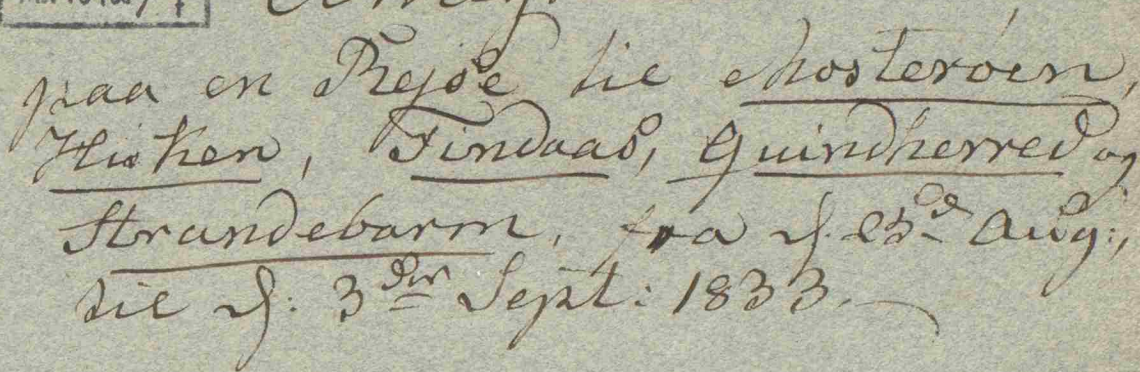 paa en Rejse til Mosterøen,
Hisken, Findaas, Quindherred og
Strandebarm, fra d. 23d Aug:,
til d: 3die Sept: 1833.